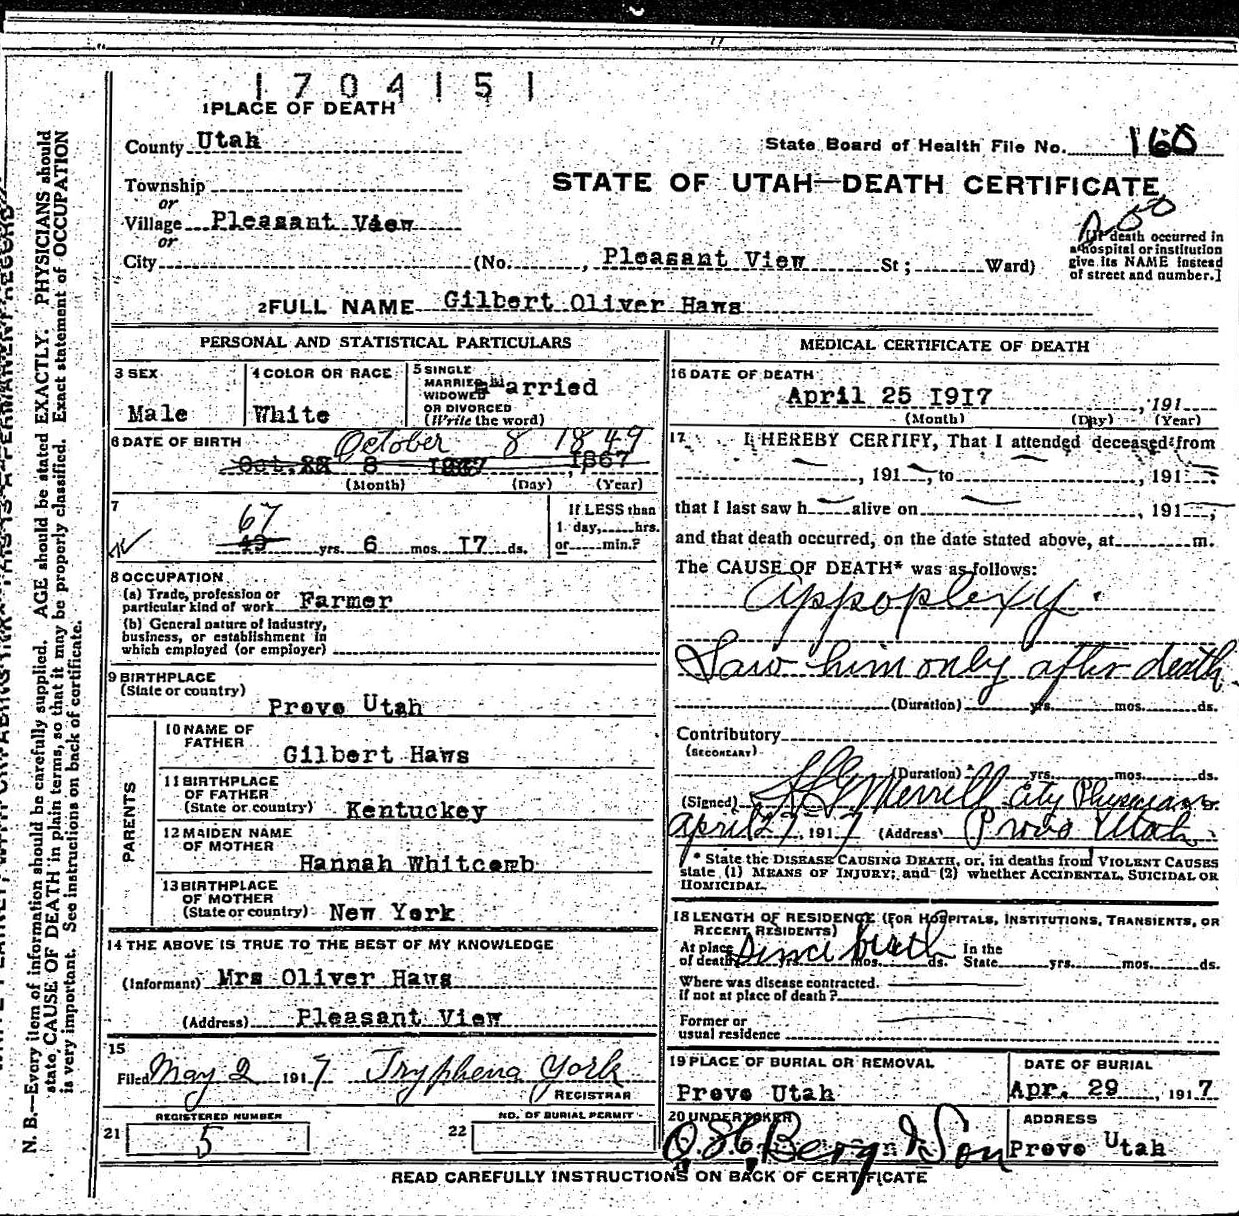 1704151
1 PLACE OF DEATH
County Utah
State Board of Health File No. 160
Township
STATE OF UTAH—DEATH CERTIFICATE
or
Village Pleasant View
or
City (No. , Pleasant View St; Ward)
[If death occurred in
a hospital or institution
give its NAME instead
of street and number.]
2 FULL NAME Gilbert Oliver Haws
PERSONAL AND STATISTICAL PARTICULARS
3 SEX
Male
4 COLOR OR RACE
White
5 SINGLE
MARRIED
WIDOWED
OR DIVORCED
(Write the word)
married
6 DATE OF BIRTH
October 8 1849
Oct. 8 1867
(Month) (Day) (Year)
7
67
49 yrs. 6 mos. 17 ds.
If LESS than
1 day, hrs.
or min.?
8 OCCUPATION
(a) Trade, profession or
particular kind of work Farmer
(b) General nature of industry,
business, or establishment in
which employed (or employer)
9 BIRTHPLACE
(State or country)
Provo Utah
PARENTS
10 NAME OF
FATHER
Gilbert Haws
11 BIRTHPLACE
OF FATHER
(State or country) Kentuckey
12 MAIDEN NAME
OF MOTHER
Hannah Whitcomb
13 BIRTHPLACE
OF MOTHER
(State or country) New York
14 THE ABOVE IS TRUE TO THE BEST OF MY KNOWLEDGE
(Informant) Mrs Oliver Haws
(Address) Pleasant View
15
Filed May 2 1917 Tryphena York
REGISTRAR
REGISTERED NUMBER
21 5
NO. OF BURIAL PERMIT
22
MEDICAL CERTIFICATE OF DEATH
16 DATE OF DEATH
April 25 1917 , 191
(Month) (Day) (Year)
17 I HEREBY CERTIFY, That I attended deceased from
, 191 , to , 191 ;
that I last saw h alive on , 191 ,
and that death occurred, on the date stated above, at m.
The CAUSE OF DEATH* was as follows:
Appoplexy.
Saw him only after death.
(Duration) yrs. mos. ds.
Contributory
(SECONDARY)
(Duration) yrs. mos. ds.
(Signed) Merrill City Physician
April 27, 1917 (Address) Provo Utah
* State the DISEASE CAUSING DEATH, or, in deaths from VIOLENT CAUSES
state (1) MEANS OF INJURY; and (2) whether ACCIDENTAL, SUICIDAL OR
HOMICIDAL.
18 LENGTH OF RESIDENCE (FOR HOSPITALS, INSTITUTIONS, TRANSIENTS, OR
RECENT RESIDENTS)
At place In the
of death Since birth yrs. mos. ds. State yrs. mos. ds.
Where was disease contracted.
if not at place of death?
Former or
usual residence
19 PLACE OF BURIAL OR REMOVAL
Provo Utah
DATE OF BURIAL
Apr. 29 , 1917
20 UNDERTAKER
Berg & Son
ADDRESS
Provo Utah
READ CAREFULLY INSTRUCTIONS ON BACK OF CERTIFICATE
N. B.—Every item of information should be carefully supplied. AGE should be stated EXACTLY. PHYSICIANS should
state CAUSE OF DEATH in plain terms, so that it may be properly classified. Exact statement of OCCUPATION
is very important. See instructions on back of certificate.